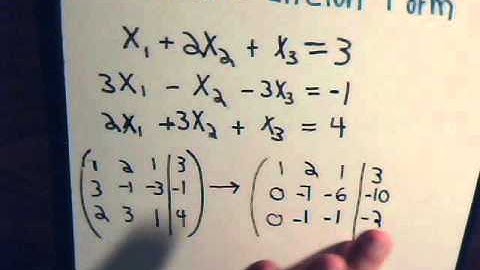 Form
x₁ + 2x₂ + x₃ = 3
3x₁ - x₂ - 3x₃ = -1
2x₁ + 3x₂ + x₃ = 4
( 1 2 1 | 3 ) → ( 1 2 1 | 3
( 3 -1 -3 | -1 ) → ( 0 -7 -6 | -10
( 2 3 1 | 4 ) → ( 0 -1 -1 | -2